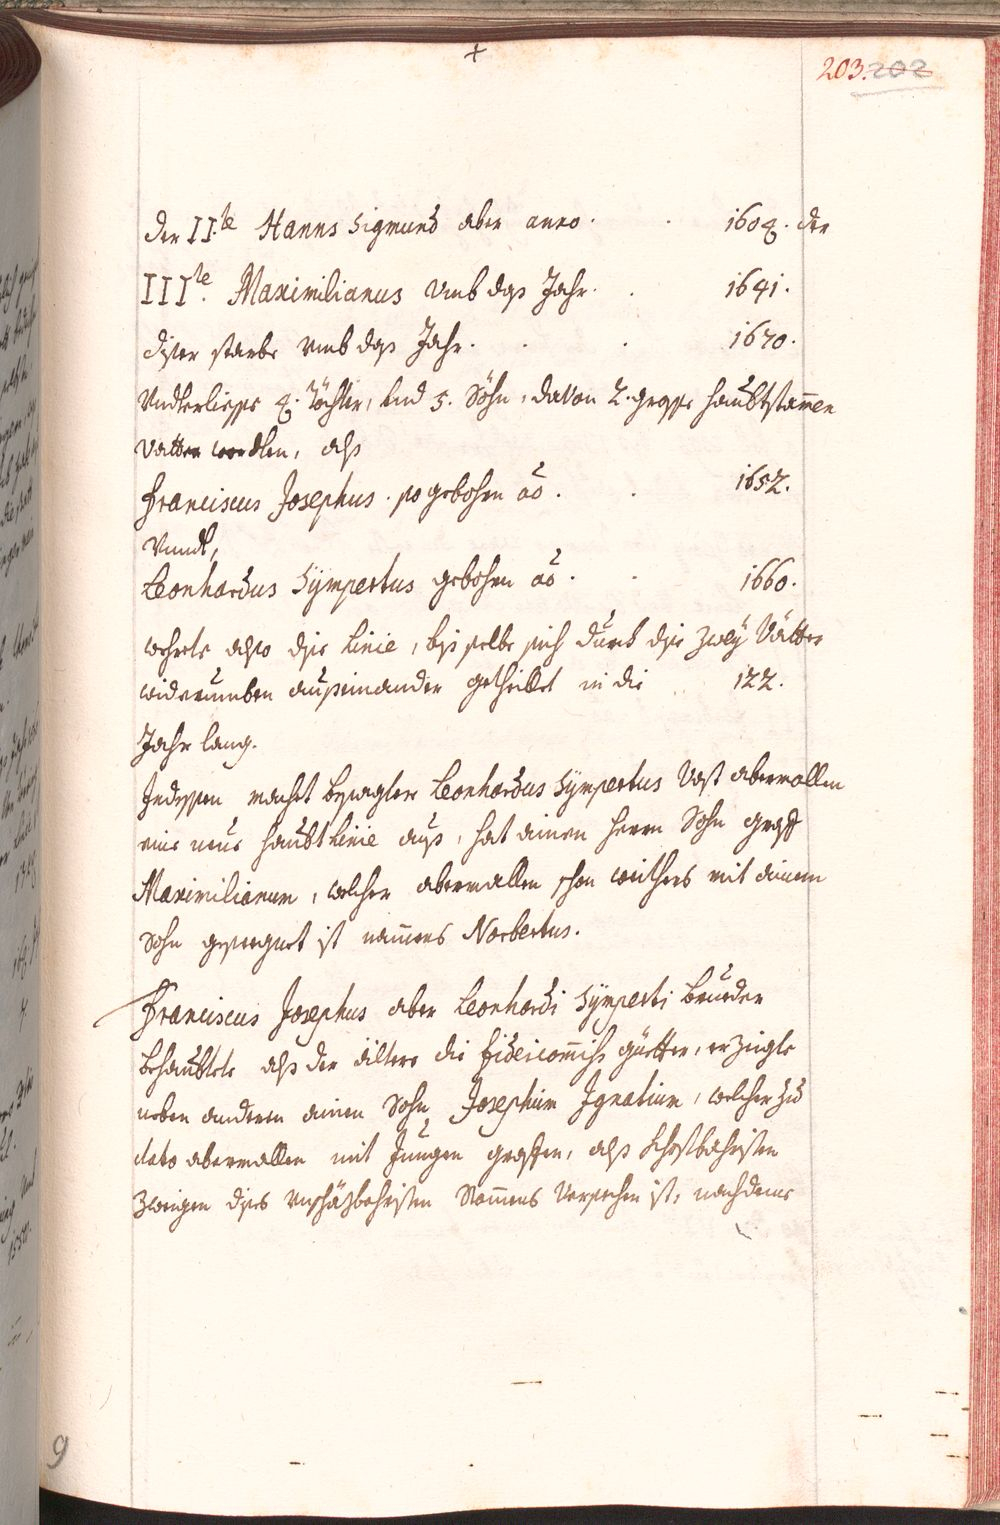 +
203. 202
der II.te Hanns Sigmund aber anno . . 1604. der
IIIte. Maximilianus umb das Jahr . . 1641.
diser starbe umb das Jahr . . . 1670.
Underliesse 4. Töchter, und 5. Söhn, davon 2. grosse Haubtstammen
Vatter worden, als
Franciscus Josephus. so gebohren ao . . 1652.
Unndt,
Leonhardus Sÿmpertus gebohren ao . . 1660.
wehrete also dise Linie, bis selbe sich durch dise zweÿ Vätter
widerumben auseinander getheillet in die 122.
Jahr lang.
Indessen machet besagter Leonhardus Sÿmpertus Vast abermallen
eine neue Haubt Linie aus, hat ainen Herrn Sohn Graff
Maximilianum, welcher abermallen schon mit ainem
Sohn gesegnet ist nammens Norbertus.
Franciscus Josephus aber Leonhardi Sÿmperti Brueder
behaubtete als der ältere die Fideicommiss güetter, erzeigte
neben anderen ainen Sohn Josephum Ignatium, welcher zu
dato abermallen mit Jungen graffen, als
Zweigen dises unschäzbahristen Stammens Versechen ist, nachdeme
9